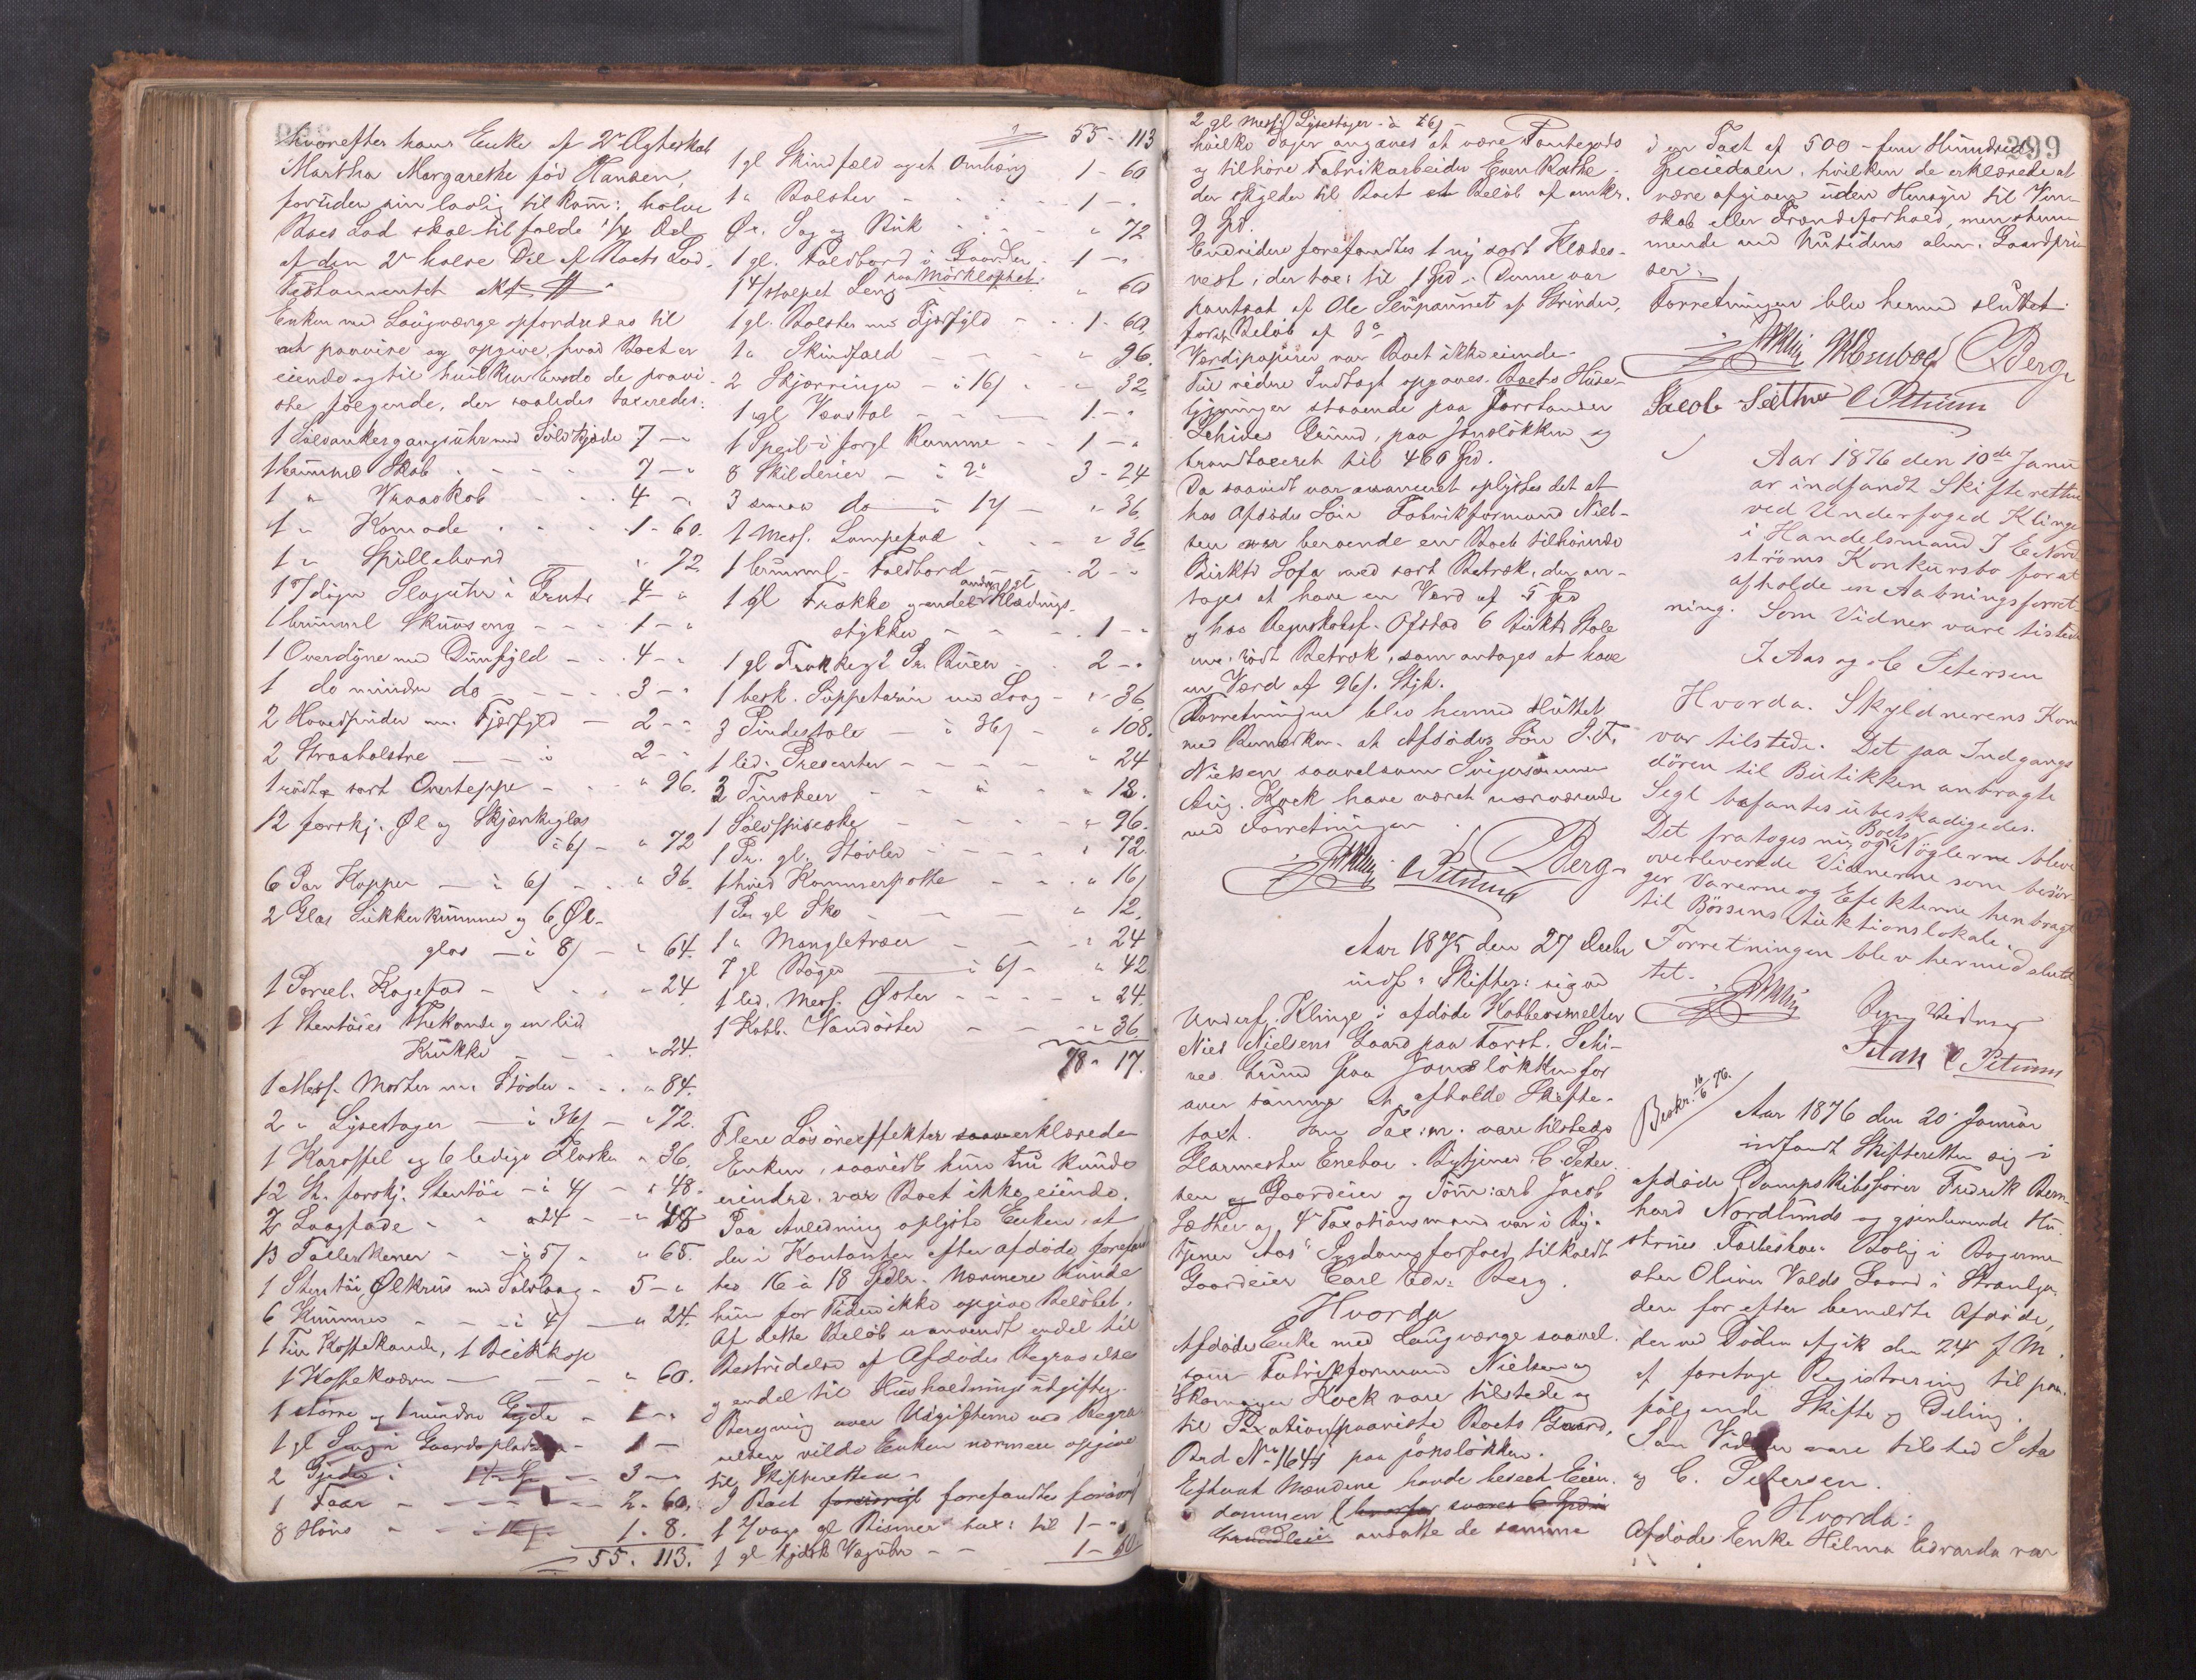 hvorefter hans Enke af 2det Ægteskab
Martha Margarethe fød Hansen,
foruden sin lovlig tilkom: halve
Boes Lod skal tilfalde 1/4 Del
af den 2den halve Del af Boets Lod.
Testamentet
Enken med Laugværge opfordredes til
at paavise og opgive, hvad Boet er
eiende og til hvilken Ende de paavi-
ste følgende, der saaledes taxeredes:
1 Sølvankergangsuhr med Sølvkjæde 7 - "
1 brunmal Skab 7 - "
1 " Vraaskab 4 - "
1 " Komode 1 - 60.
1 " Spillebord " 72
1 7/døgn Slaguhr i Trætr 4 - "
1 brunmal Skuvseng 1 - "
1 Overdyne med Dunfyld 4 - "
1 do mindre do 3 - "
2 Hovedpuder m. Fjærfyld 2 - "
2 Straabolstre 2 - "
1 rødt & sort Overteppe " 96.
12 forskj. Øl og Skjænkeglas
à 6/ " 72
6 Par Kopper à 6/ " 36.
2 Glas Sukkerkummer og 6 Øl-
glas à 8/ " 64.
1 Porcel. Kagefad " 24
1 Stentøies Thekande og en lid
Krukke " 24.
1 Mess. Morter m. Støder " 84.
2 " Lysestager à 36/ " 72.
1 Karaffel og 6 ledige Flasker " 36.
12 St. forskj. Stentøi à 4/ " 48.
2 Laagfade à 24 " 48
13 Tallerkener à 5/ " 65.
1 Stentøi Ølkrus med Sølvlaag 5 - "
6 Kummer à 4/ " 24.
1 Tin Kaffekande, 1 Blikkop
1 Kaffekværn " 60.
1 større og 1 mindre Gjede 1 - "
1 gl Seng i Gaardspladsen 1 -
2 Gjeder 3 -
1 Faar 2 - 60.
8 Høns 1. 8.
55. 113.
55 - 113
1 gl Skindfæld og et Omhæng 1 - 60
1 " Bolster 1 - "
Øx. Sag og Buk " 72
1 gl. Foldbord i Gaarden 1 - "
paa Mørkloftet
1 4/stolpet Seng " 60
1 gl. Bolster m Fjærfyld 1 - 60.
1 " Skindfæld " 96.
2 Skjærringer à 16/ " 32
1 gl Vævstol 1 - "
1 Speil i forgl Ramme 1 - "
8 Skilderier à 2" 3 - 24
3 smaa do à 12/ " 36
1 Mess. Lampefad " 36
1 brunml. Foldbord 2 - "
1 gl Frakke og endel andre gl Klædnings-
stykker 1 - "
1 gl Frakke & 2 Pr. Buxer 2 - "
1 besk. Suppeterin med Laag " 36.
3 Pindestole à 36/ " 108.
1 lid. Presenter " 24
3 Tinskeer " 18.
1 Sølvspiseske " 96.
1 Pr. gl. Støvler " 72.
1 hvid Kammerpotte " 16/
1 Par gl Sko " 12.
1 " Mangletræer " 24
7 gl Bøger à 6/ " 42
1 lid. Mess. Øster " 24.
1 Kobb. Vandøster " 36
78 " 17.
Flere Løsøreeffekter erklærede
Enken, saavidt hun nu kunde
erindre, var Boet ikke eiende.
Paa Anledning oplyste Enken, at
der i Kontanter efter afdøde forefand
tes 16 à 18 Spdlr. Nærmere kunde
hun for Tiden ikke opgive Beløbet;
Af dette Beløb er anvendt endel til
Bestridelse af Afdødes Begravelse
og endel til Husholdningsudgifter.
Beregning over Udgifterne ved Begra-
velsen vilde Enken nærmere opgive
til Skifteretten.
I Boet forefandtes
1 2/vogs gl Bismer tax: til 1 - "
1 gl tydsk Væguhr 1 - 60
2 gl Mess. Lysestager à 26/ -
hvilke Sager angaves at være Pantegods
og tilhøre Fabrikarbeider Even Rathe
der skylder til Boet et Beløb af omkr.
9 Spd.
Endvidere forefandtes 1 ny sort Klædes-
vest, der tax: til 1 Spd. Denne var
pantsat af Ole af Strinden,
for et Beløb af 3"
Værdipapirer var Boet ikke eiende.
Til videre Indtægt opgaves Boets Huse-
bygninger staaende paa Forstander
Schives Grund, paa Jonsløkken og
brandtaxeret til 460 Spd.
Da saavidt var avanceret oplystes det at
hos Afdødes Søn Fabrikformand Niel-
sen var beroende en Boet tilhørende
Birkts Sofa med sort Betræk, der an-
tages at have en Værd af 5 Spd
og hos Ofstad 6 Birkts Stole
med rødt Betræk, som antages at have
en Værd af 96/. Stk.
Forretningen blev hermed sluttet
med Bemærkn. at Afdødes Søn P. F.
Nielsen saavelsom Svigersønnen
Aug. Kock have været nærværende
ved Forretningen.
Klinge C Petersen Berg
Aar 1875 den 27 Decbr
indf: Skifter: sig ved
Underf. Klinge i afdøde Kobbersmelter
Niels Nielsens Gaard paa Forst. Schi-
ves Grund paa Jonsløkken for
over samme at afholde Skifte-
taxt. Som Tax:m. vare tilstede
Glarmester Eneboe. Bytjener C. Peter-
sen og Gaardeier og Tøm:arb Jacob
Sæther og 4de Taxationsmand var i By-
tjener Aas' Sygdomsforfald tilkaldt
Gaardeier Carl Edv: Berg.
Hvorda
Afdødes Enke med Laugværge saavel-
som Fabrikformand Nielsen og
Skomager Kock vare tilstede og
til Taxation paaviste Boets Gaard,
Brd No 164 paa Jonsløkken.
Efterat Mændene havde beseet Eien-
dommen (hvorfor svares 6 Spd i
Grundleie) ansatte de samme
299
i en Taxt af 500 - fem Hundrede
Speciedaler, hvilken de erklærede at
være afgiven uden Hensyn til Ven-
skab eller Frændeforhold, men stem-
mende med Nutidens alm. Gaardpri-
ser.
Forretningen blev hermed sluttet.
Klinge Eneboe Berg
Jacob Sæther C Petersen
Aar 1876 den 10de Janu
ar indfandt Skifteretten
ved Underfoged Klinge
i Handelsmand J E Nord
strøms Konkursbo for at
afholde en Aabningsforret-
ning. Som Vidner vare tilstede
J. Aas og C Petersen
Hvorda. Skyldnerens Kone
var tilstede. Det paa Indgangs
døren til Butikken anbragte
Segl befantes ubeskadigedes.
Det fratoges nu og Boets Nøglerne bleve
overleverede Vidnerne som besør-
ger Varerne og Efekterne henbragt
til Børsens Auktionslokale.
Forretningen blev hermed slut-
tet.
Klinge
Som Vidner
J Aas C Petersen
Beskr. 16/6 76.
Aar 1876 den 20 Januar
indfandt Skifteretten sig i
afdøde Dampskibsfører Fredrik Bern-
hard Nordlunds og gjenlevende Hu-
strues Fælleskabs Bolig i Bagerme-
ster Oliver Valds Gaard i Strandga-
den for efter bemeldte Afdøde,
der ved Døden afgik den 24de f. M.
at foretage Registrering til paa-
følgende Skifte og Deling.
Som Vidner vare tilsted J Aas
og C. Petersen.
Hvorda:
Afdødes Enke Hilma Edvarda var